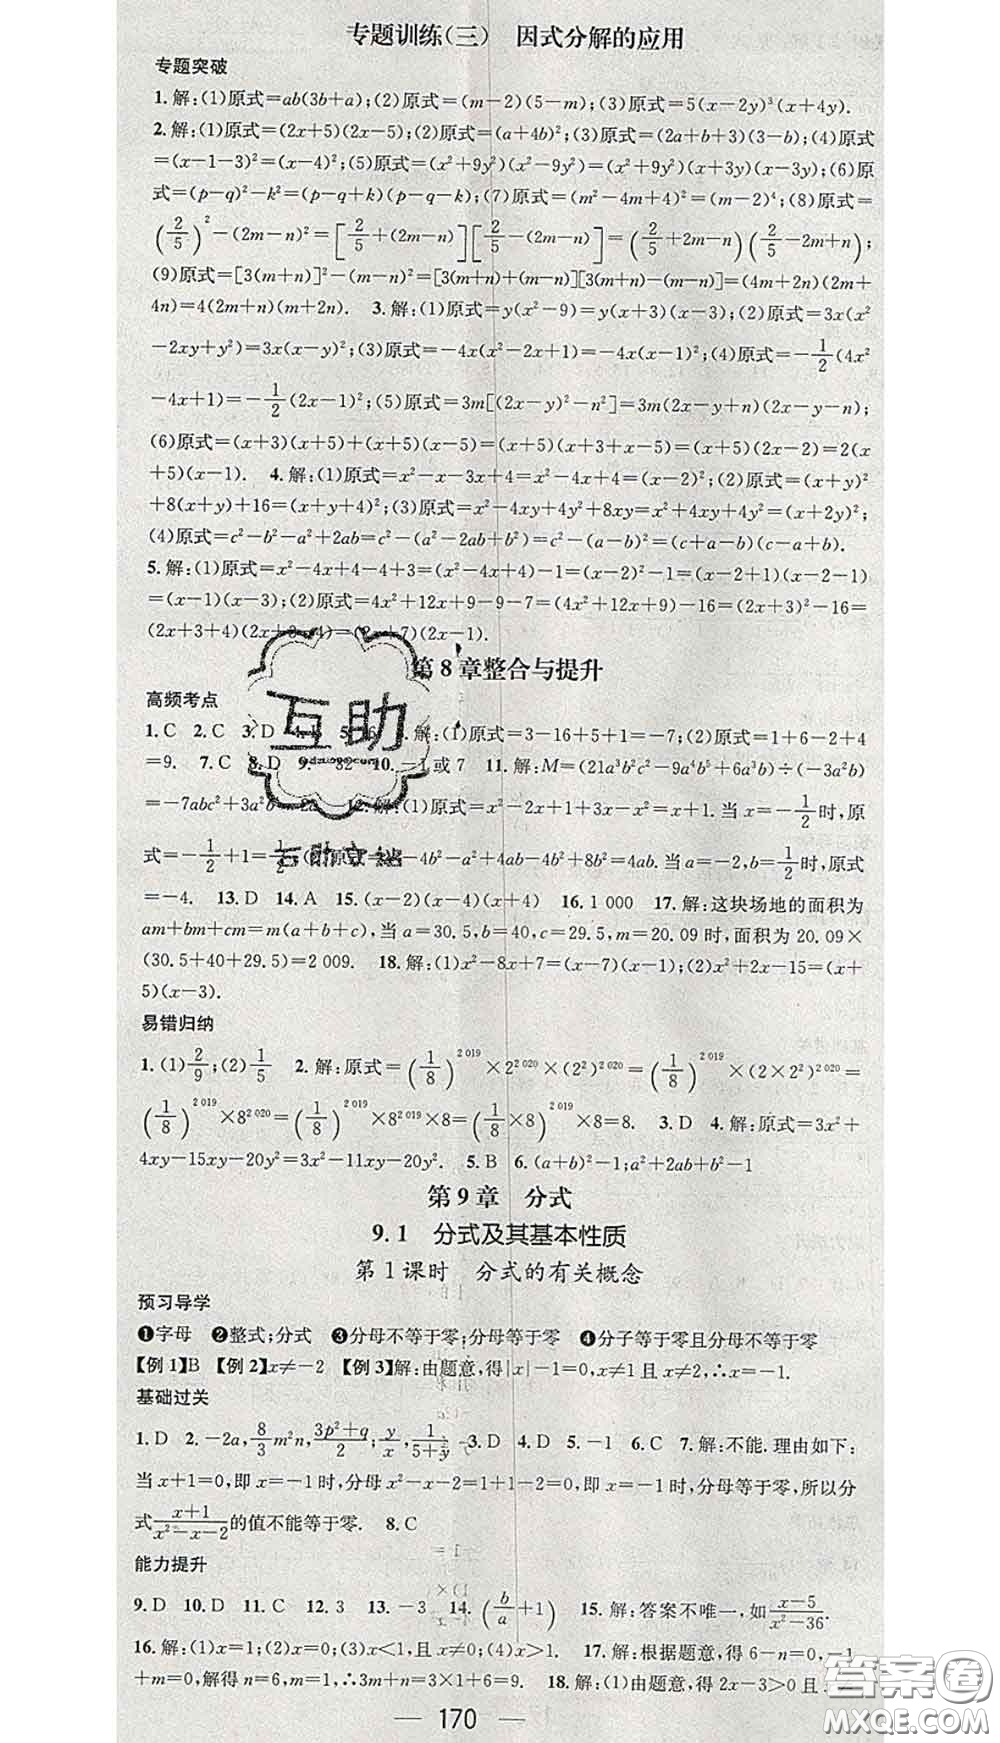 专题训练(三) 因式分解的应用
专题突破
1.解:(1)原式=ab(3b+a);(2)原式=(m-2)(5-m);(3)原式=5(x-2y)³(x+4y).
2.解:(1)原式=(2x+5)(2x-5);(2)原式=(a+4b)²;(3)原式=(2a+b+3)(3-b);(4)原式
=(x-1-3)²=(x-4)²;(5)原式=(x²+9y²)(x²-9y²)=(x²+9y²)(x+3y)(x-3y);(6)原式=
(p-q)²-k²=(p-q+k)(p-q-k);(7)原式=(m²-4m+4)²=(m-2)⁴;(8)原式=
(2/5)²-(2m-n)²=[2/5+(2m-n)][2/5-(2m-n)]=(2/5+2m-n)(2/5-2m+n);
(9)原式=[3(m+n)]²-(m-n)²=[3(m+n)+(m-n)][3(m+n)-(m-n)]=(4m+2n)(2m+
4n)=4(2m+n)(m+2n). 3.解:(1)原式=y(x²-9)=y(x+3)(x-3);(2)原式=3x(x²
-2xy+y²)=3x(x-y)²;(3)原式=-4x(x²-2x+1)=-4x(x-1)²;(4)原式=-1/2(4x²
-4x+1)=-1/2(2x-1)²;(5)原式=3m[(2x-y)²-n²]=3m(2x-y+n)(2x-y-n);
(6)原式=(x+3)(x+5)+(x+5)(x-5)=(x+5)(x+3+x-5)=(x+5)(2x-2)=2(x
+5)(x-1). 4.解:(1)原式=x²-x-3x+4=x²-4x+4=(x-2)²;(2)原式=(x+y)²
+8(x+y)+16=(x+y+4)²;(3)原式=x²-4xy+4y²+8xy=x²+4xy+4y²=(x+2y)²;
(4)原式=c²-b²-a²+2ab=c²-(a²-2ab+b²)=c²-(a-b)²=(c+a-b)(c-a+b).
5.解:(1)原式=x²-4x+4-4+3=(x²-4x+4)-1=(x-2)²-1=(x-2+1)(x-2-1)
=(x-1)(x-3);(2)原式=4x²+12x+9-9-7=(4x²+12x+9)-16=(2x+3)²-16=
(2x+3+4)(2x+3-4)=(2x+7)(2x-1).
第8章整合与提升
高频考点
1.C 2.C 3.D 解:(1)原式=3-16+5+1=-7;(2)原式=1+6-2+4
=9. 7.C 8.D 9. 10.-1或7 11.解:M=(21a³b²c-9a⁴b⁵+6a³b)÷(-3a²b)
=-7abc²+3a²b 12.解:(1)原式=x²-2x+1+3x-x²=x+1.当x=-1/2时,原
式=-1/2+1=1/2;(2)原式 -4b²-a²+4ab-4b²+8b²=4ab.当a=-2,b=1/2时,原式
=-4. 13.D 14.A 15.(x-2)(x-4)(x+4) 16.1 000 17.解:这块场地的面积为
am+bm+cm=m(a+b+c),当a=30.5,b=40,c=29.5,m=20.09时,面积为20.09×
(30.5+40+29.5)=2 009. 18.解:(1)x²-8x+7=(x-7)(x-1);(2)x²+2x-15=(x+
5)(x-3).
易错归纳
1.(1)2/9;(2)1/5 2.解:原式=(1/8)^2 019×2^2 020×(2²)^2 020=(1/8)^2 019×(2×2²)^2 020=
(1/8)^2 019×8^2 020=(1/8)^2 019×8^2 019×8=(1/8×8)^2 019×8=8. 3.D 4.解:原式=3x²+
4xy-15xy-20y²=3x²-11xy-20y². 5.B 6.(a+b)²-1;a²+2ab+b²-1
第9章 分式
9.1 分式及其基本性质
第1课时 分式的有关概念
预习导学
❶字母 ❷整式;分式 ❸分母不等于零;分母等于零 ❹分子等于零且分母不等于零
【例1】B 【例2】x≠-2 【例3】解:由题意,得|x|-1=0,x≠1且x≠-2,∴x=-1.
基础过关
1.D 2.-2a,8/3m²n,(3p²+q)/2;y/x,1/(5+y) 3.D 4.D 5.-1 6.C 7.解:不能.理由如下:
当x+1=0,即x=-1时,分母x²-x-2=1+1-2=0,即x=-1时,分母等于零,所以分
式(x+1)/(x²-x-2)的值不能等于零. 8.C
能力提升
9.D 10.D 11.C 12.3 13.-3 14.(b/a+1) 15.解:答案不唯一,如(x-5)/(x²-36).
16.解:(1)x=1;(2)x=0;(3)x<1,且x≠0;(4)x>1. 17.解:根据题意,得6-n=0,-1
+m=0,解得n=6,m=1,∴3m+n=3×1+6=9. 18.解:(1)由题意,得2x-3>0且
170
互助
答案圈
MXQE.COM